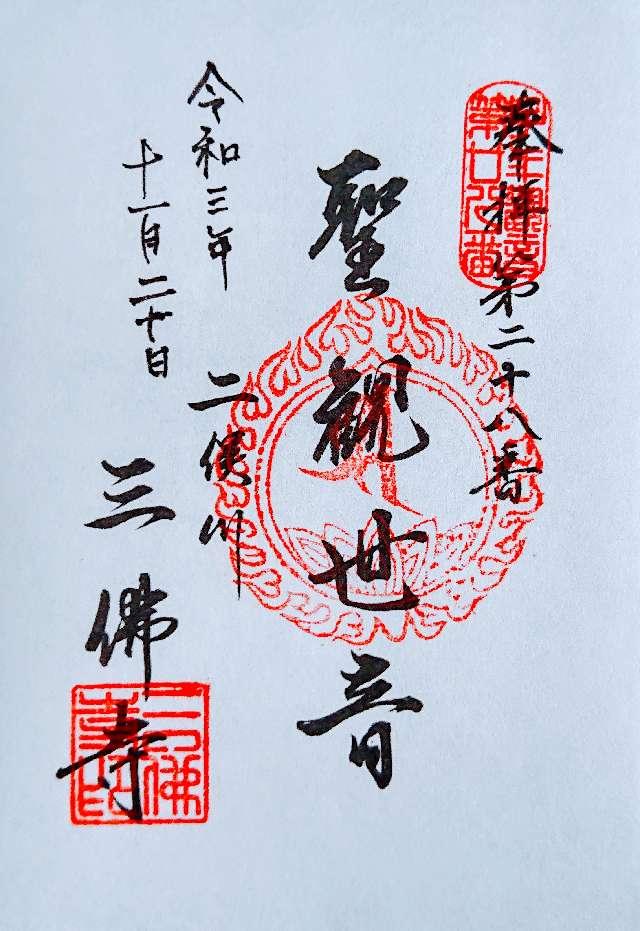 奉拝 第二十八番
聖観世音
二俣川
三佛寺
令和三年
十一月二十日
第廿八番
三佛寺印